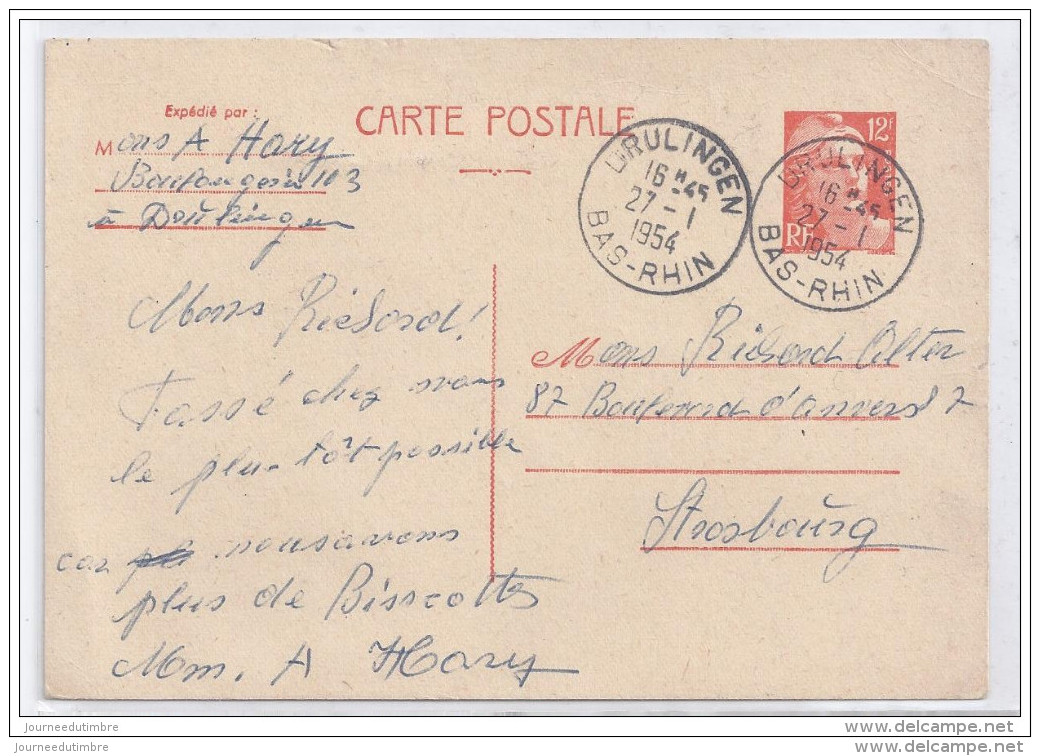 Expédié par :
CARTE POSTALE
12F
Mons A Hary
103
à
DRULINGEN
16 H 45
27 - 1
1954
BAS-RHIN
DRULINGEN
16 H 45
27 - 1
1954
BAS-RHIN
RF
Mons Richard!
Passé chez nous
le plus tôt possible
car nousavons
plus de Biscotts
Mm. A Hary
Mons Richard Alter
87 Boulevard d'anvers
Strasbourg
Journeedutimbre
Journeedutimbre
www.delcampe.net
www.delcampe.net